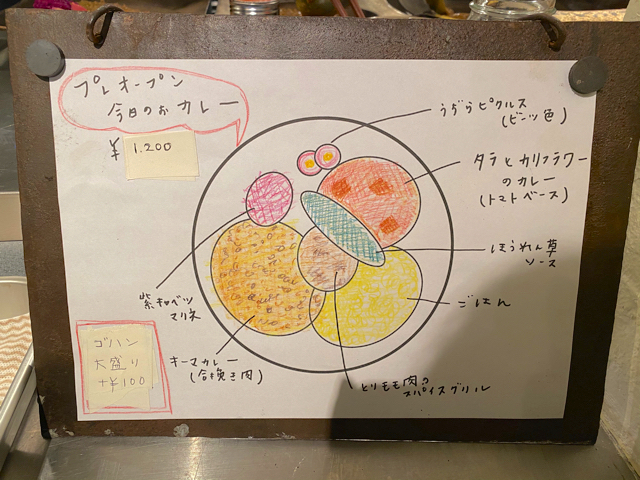 プレオープン
今日のおカレー
¥ 1.200
うずらピクルス
(ビーツ色)
タラとカリフラワー
のカレー
(トマトベース)
ほうれん草
ソース
ごはん
とりもも肉の
スパイスグリル
キーマカレー
(合挽き肉)
紫キャベツ
マリネ
ゴハン
大盛り
+¥100